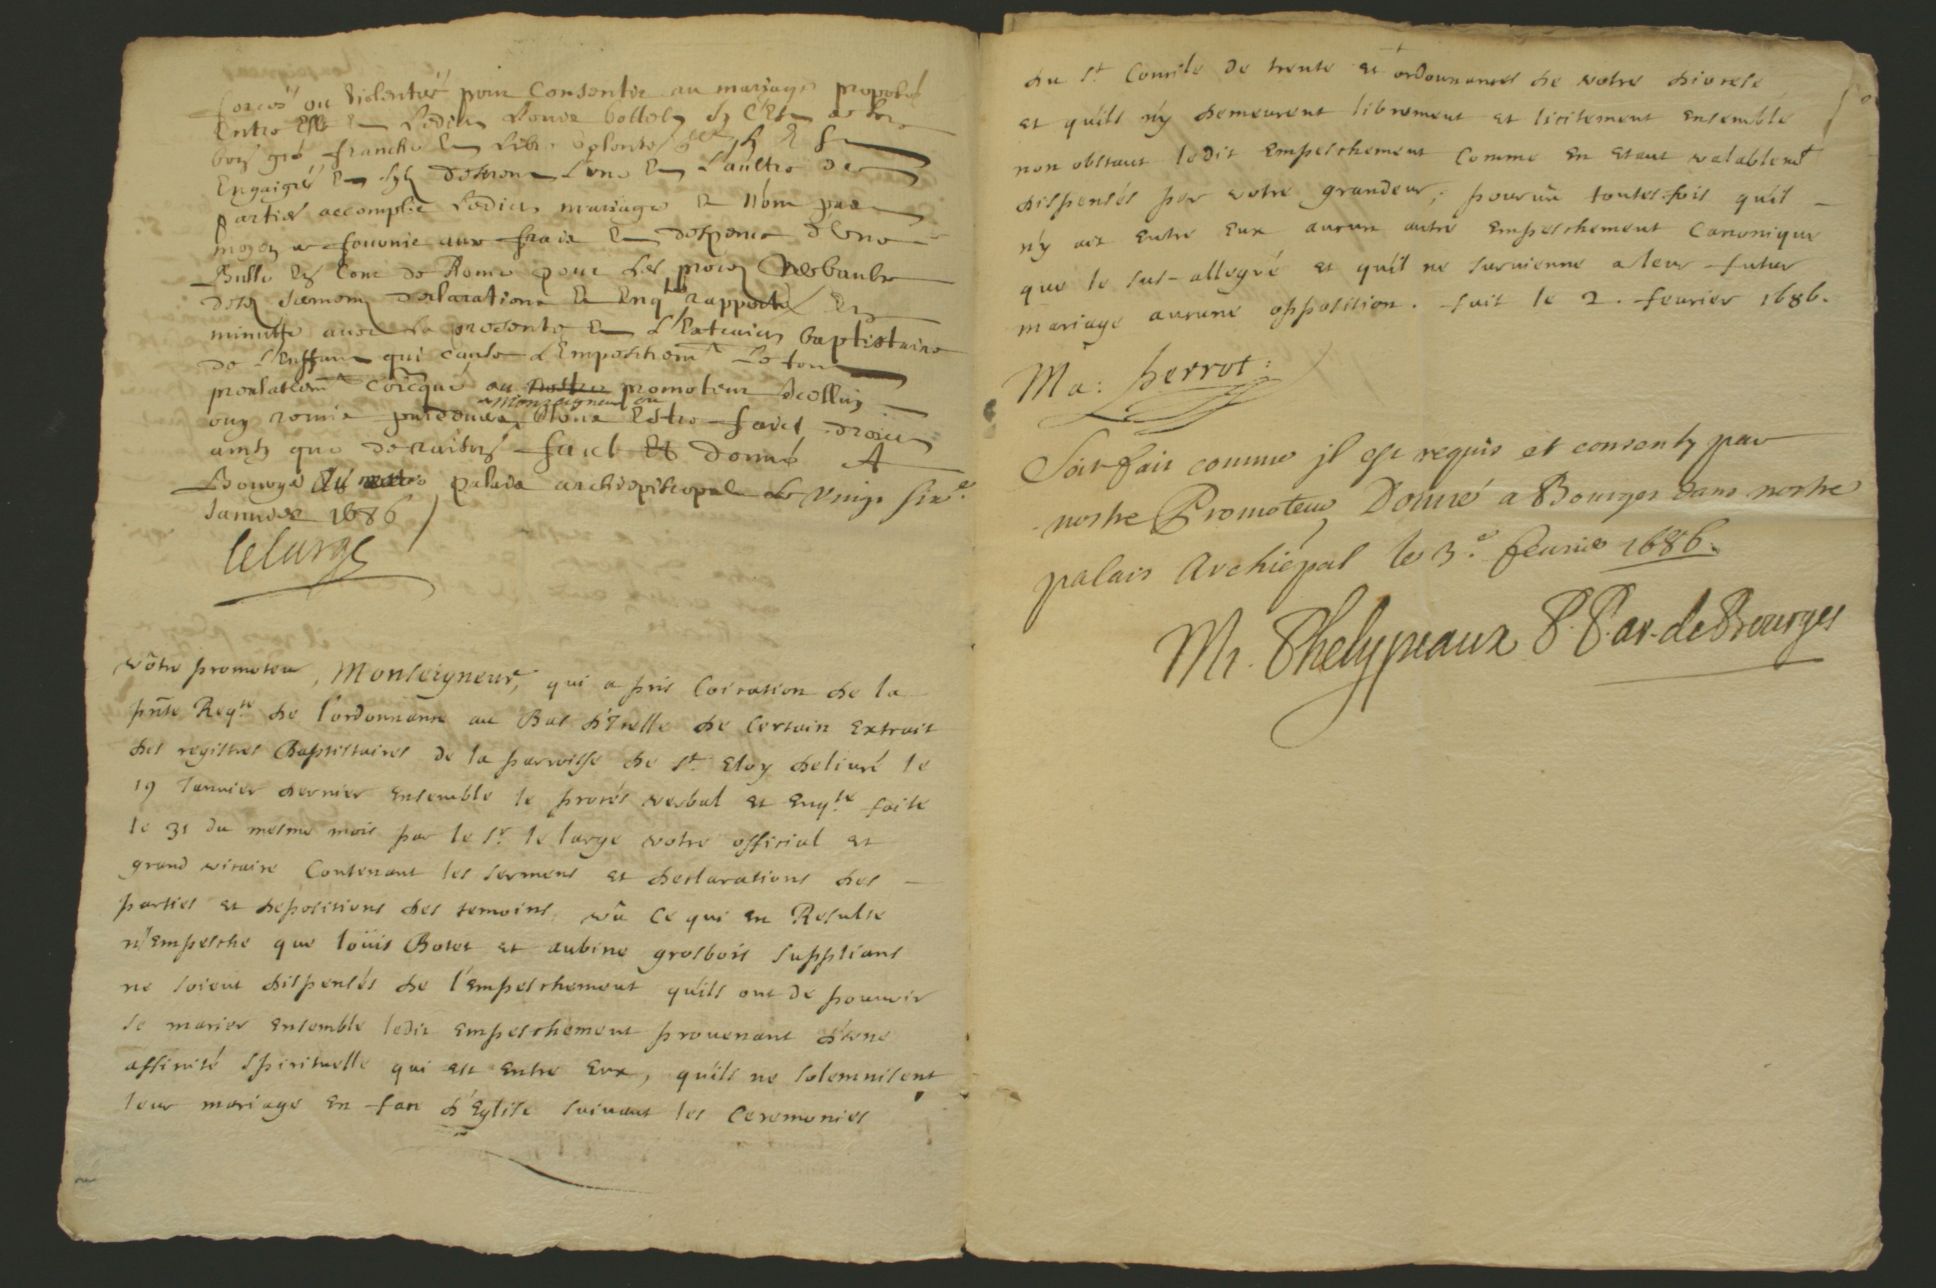 forcée ou violentée pour consentir au mariage proposé
entre elle et ledict Louis
bon gré franche et libre volonté
engaigés et l'une et l'aultre des
parties accomplir ledict mariage et n'ont pas
moyen de fournir aux frais et despence d'une
Bulle en cour de Rome pour les proces verbaulx
declarations et Enqte rapportés
minutte avec la presente et l'extraict baptistaire
de l'enffant qui cause l'Empeschemt Le tout
prealablemt coicqué au promoteur
a Monseigneur ou
ouy estre faict droict
ainsy que de raison faict et donné A
Bourges Au palais archiepiscopal le vingt six e
Janvier 1686
lelarge
vôtre promoteur, Monseigneur, qui a pris Coîcation de la
pñte Reqte de l'ordonnance au Bas d'Icelle de Certain Extrait
des registres Baptistaires de la parroisse de St Eloy delivré le
19 Janvier dernier ensemble le procés verbal et Enqte faite
le 31 du mesme mois par le Sr le large votre official et
grand vicaire Contenant les sermens et declarations des
parties et depositions des temoins, vû Ce qui en Resulte
n'Empesche que loüis Botet et aubine grosbois supplians
ne soient dispensés de l'empeschement qu'ils ont de pouvoir
se marier ensemble ledit empeschement provenant d'une
affinité spirituelle qui est entre Eux, qu'ils ne solemnisent
leur mariage en face d'Eglise suivant les Ceremonies
du St Concile de trente et ordonnances de votre diocese
et qu'ils n'y demeurent librement et licitement ensemble
non obstant ledit empeschement Comme en etant valablemt
dispensés par votre grandeur, pourvû toutes-fois qu'il
n'y ait entre eux aucun autre empeschement Canonique
que le sus-allegué et qu'il ne survienne a leur futur
mariage aucune opposition. fait le 2. fevrier 1686.
Ma: perrot:
Soit fait comme il est requis et consenty par
nostre Promoteur Donné a Bourges dans nostre
palais Archiépal le 3.e fevrier 1686.
Mi. Phelypeaux P. P. ar. de Bourges